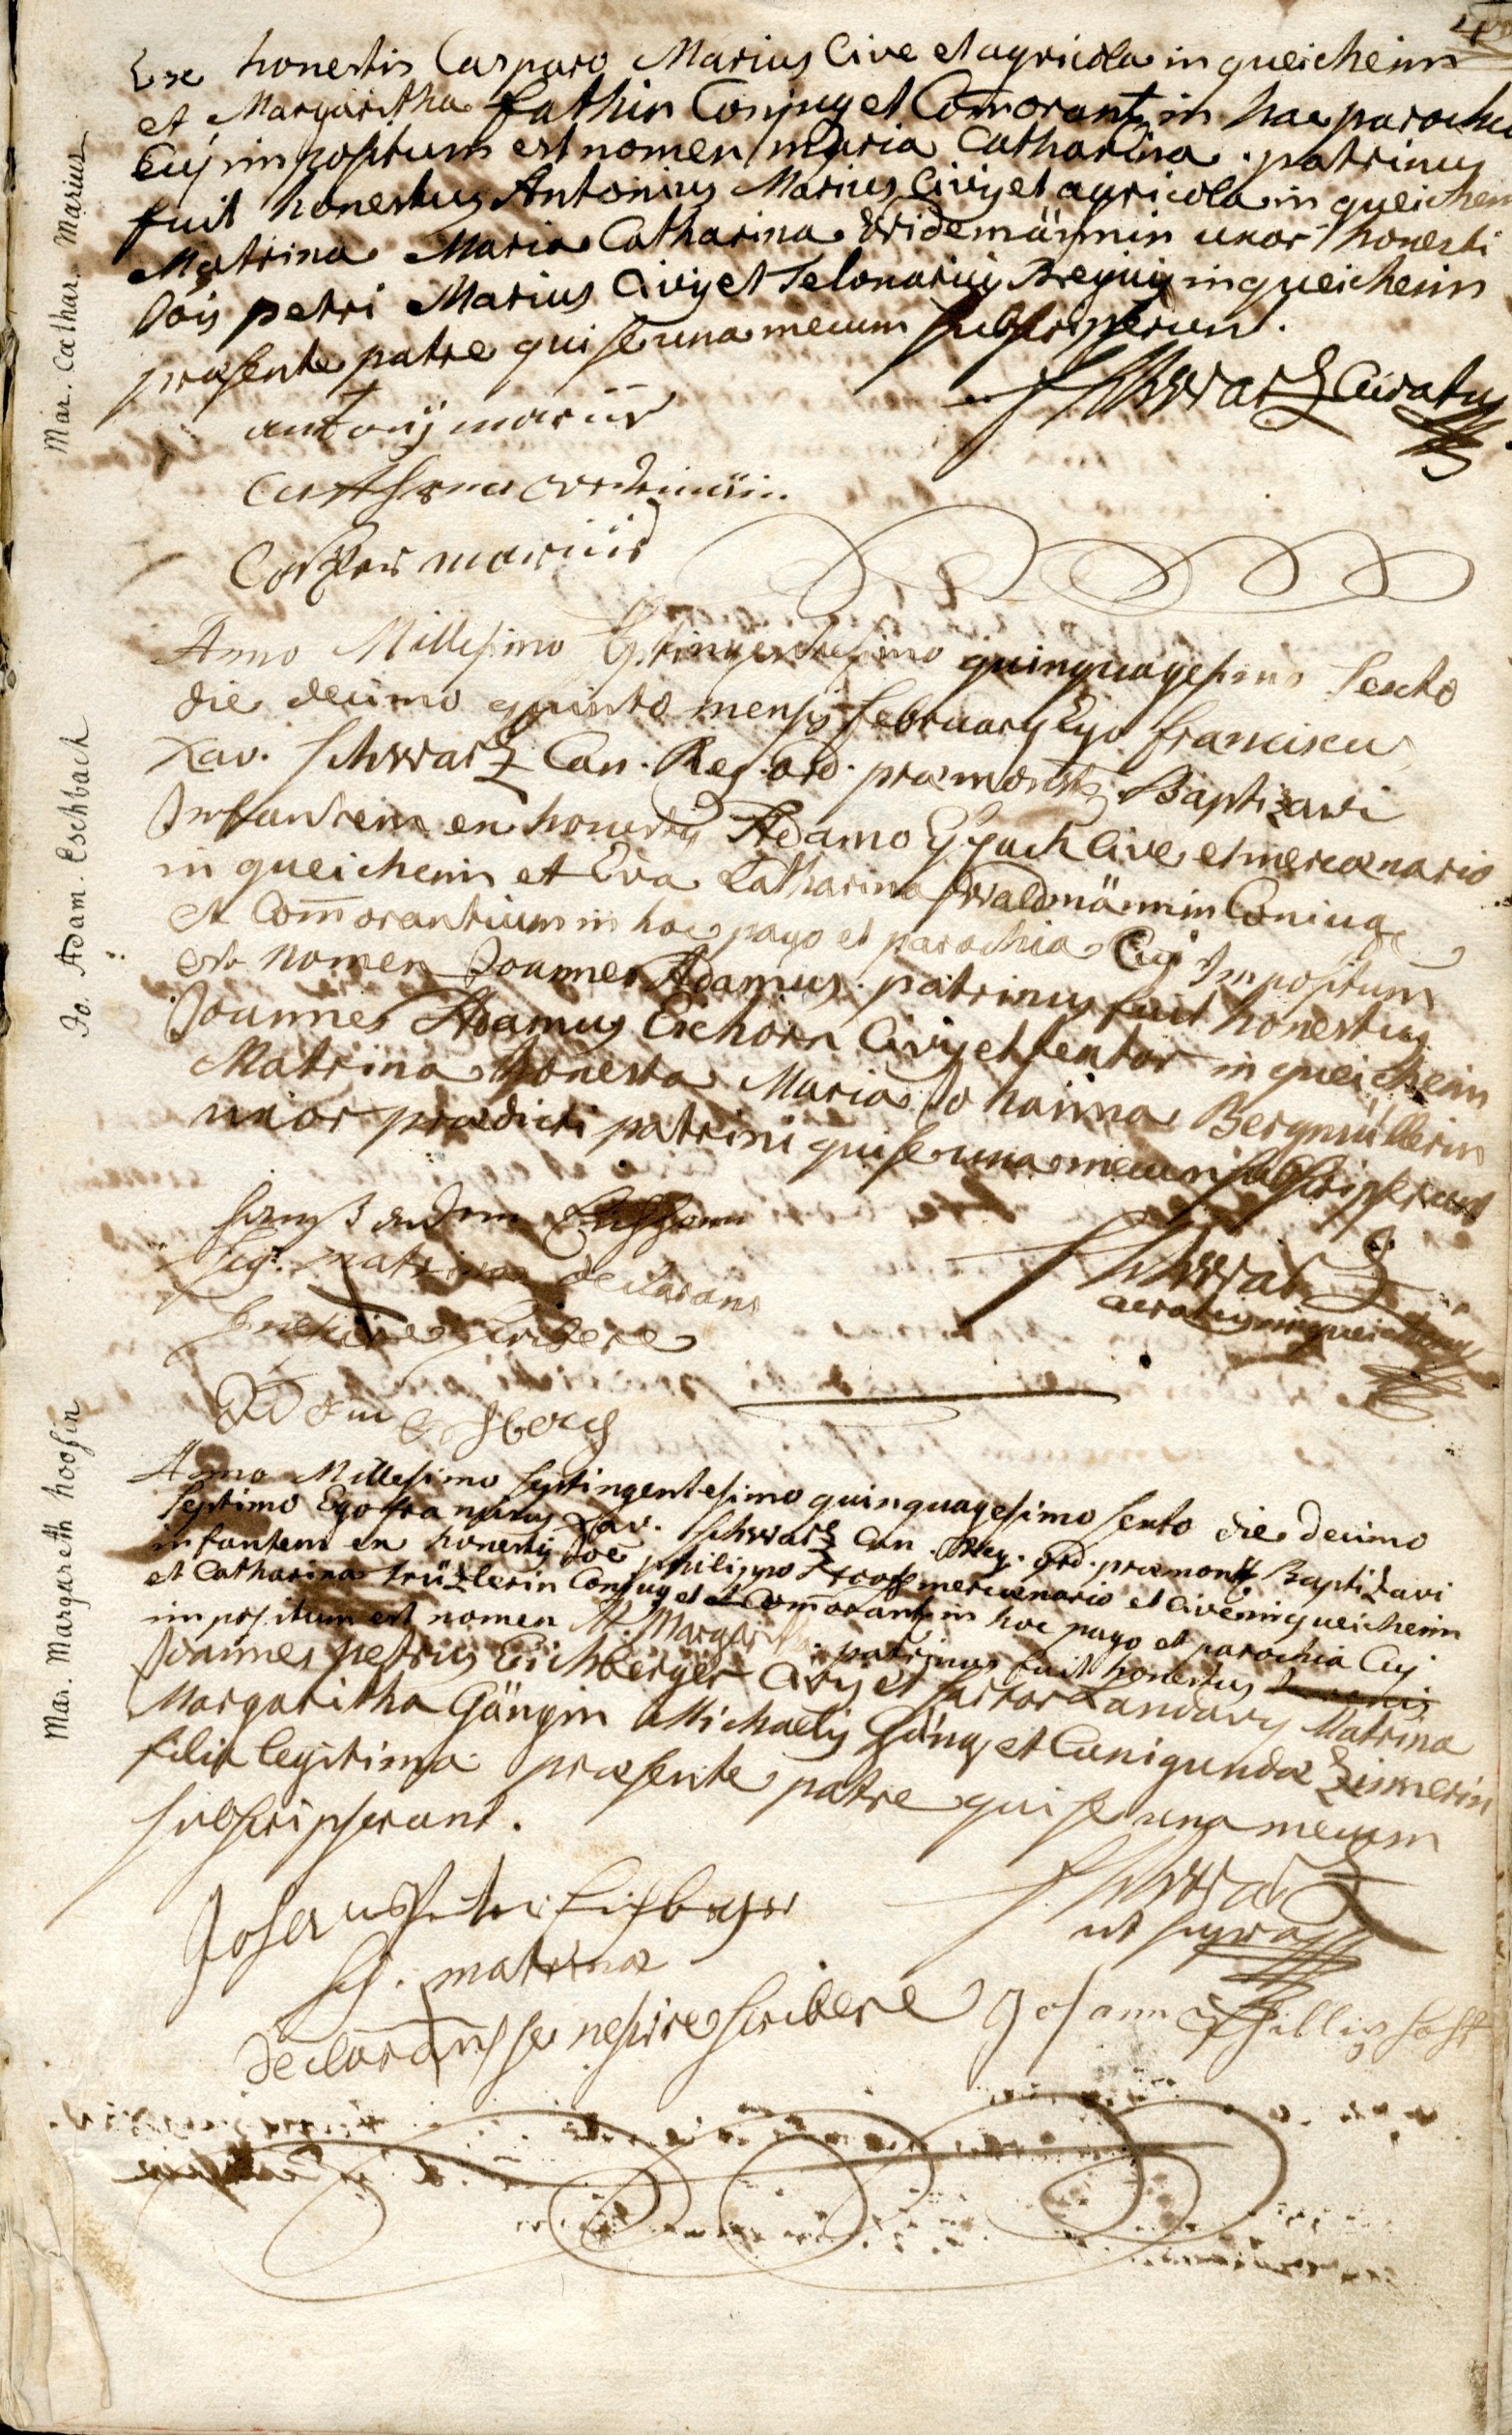 Mar. Cathar. Marius
Ex honestis Casparo Marius Cive et agricola in queicheim
et Margaritha fathin Conjug et Com̄orant in hac parochia
Cuj impositum est nomen maria Catharina. patrinus
fuit honestus Antonius Marius Civis et agricola in queicheim
Matrina Maria Catharina uxor honesti
Jois petri Marius Civis et Telonarius Regius in queicheim
præsente patre qui se una mecum subscripserunt.
Schwartz Curatus
antonÿ mariüs
Cathrina
Casper mariüs
Jo. Adam. Eschbach
Anno Millesimo Septingentesimo quinquagesimo Sexto
die decimo quinto mensis februarÿ Ego franciscus
Xav. Schwartz Can. Reg. Ord. præmonst Baptizavi
Infantem ex honestis Adamo Cive et mercænario
in queicheim et Eva Catharina Waldmännin Coniug
et Com̄orantium in hoc pago et parochia Cuj Impositum
est nomen Joannes Adamus. patrinus fuit honestus
Joannes Adamus Eichorn Civis et textor in queicheim
Matrina honesta Maria Johanna Bergmüllerin
uxor prædicti patrini qui se una mecum subscripserunt
Schwartz
curatus in queicheim
Sig. matrinæ declarans
se nescire scribere
Adam
Mar. Margareth hoosin
Anno Millesimo Septingentesimo quinquagesimo sexto die decimo
septimo Ego franciscus Xav. Schwartz Can. Reg. ord. præmonst Baptizavi
infantem ex honestis Joe philippo mercænario et cive in queicheim
et Catharina trützlerin Conjug et Com̄orant in hoc pago et parochia Cuj
impositum est nomen M. Margaritha. patrinus fuit honestus
Joannes petrus Eichberger Civis et sartor Landavÿ Matrina
Margaritha Gängin Michaelis Gäng et Cunigundæ Zimerin
filia legitima præsente patre qui se una mecum
subscripserunt.
Schwartz
ut supra
Sig. matrinæ
declarans se nescire scribere
Johann